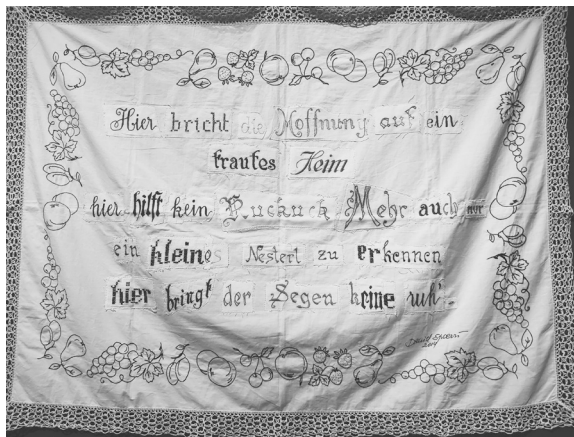 Hier bricht die Hoffnung auf ein
trautes Heim
hier hilft kein Kuckuck Mehr auch nur
ein kleines Nesterl zu erkennen
hier bringt der Segen keine ruh'.
2011